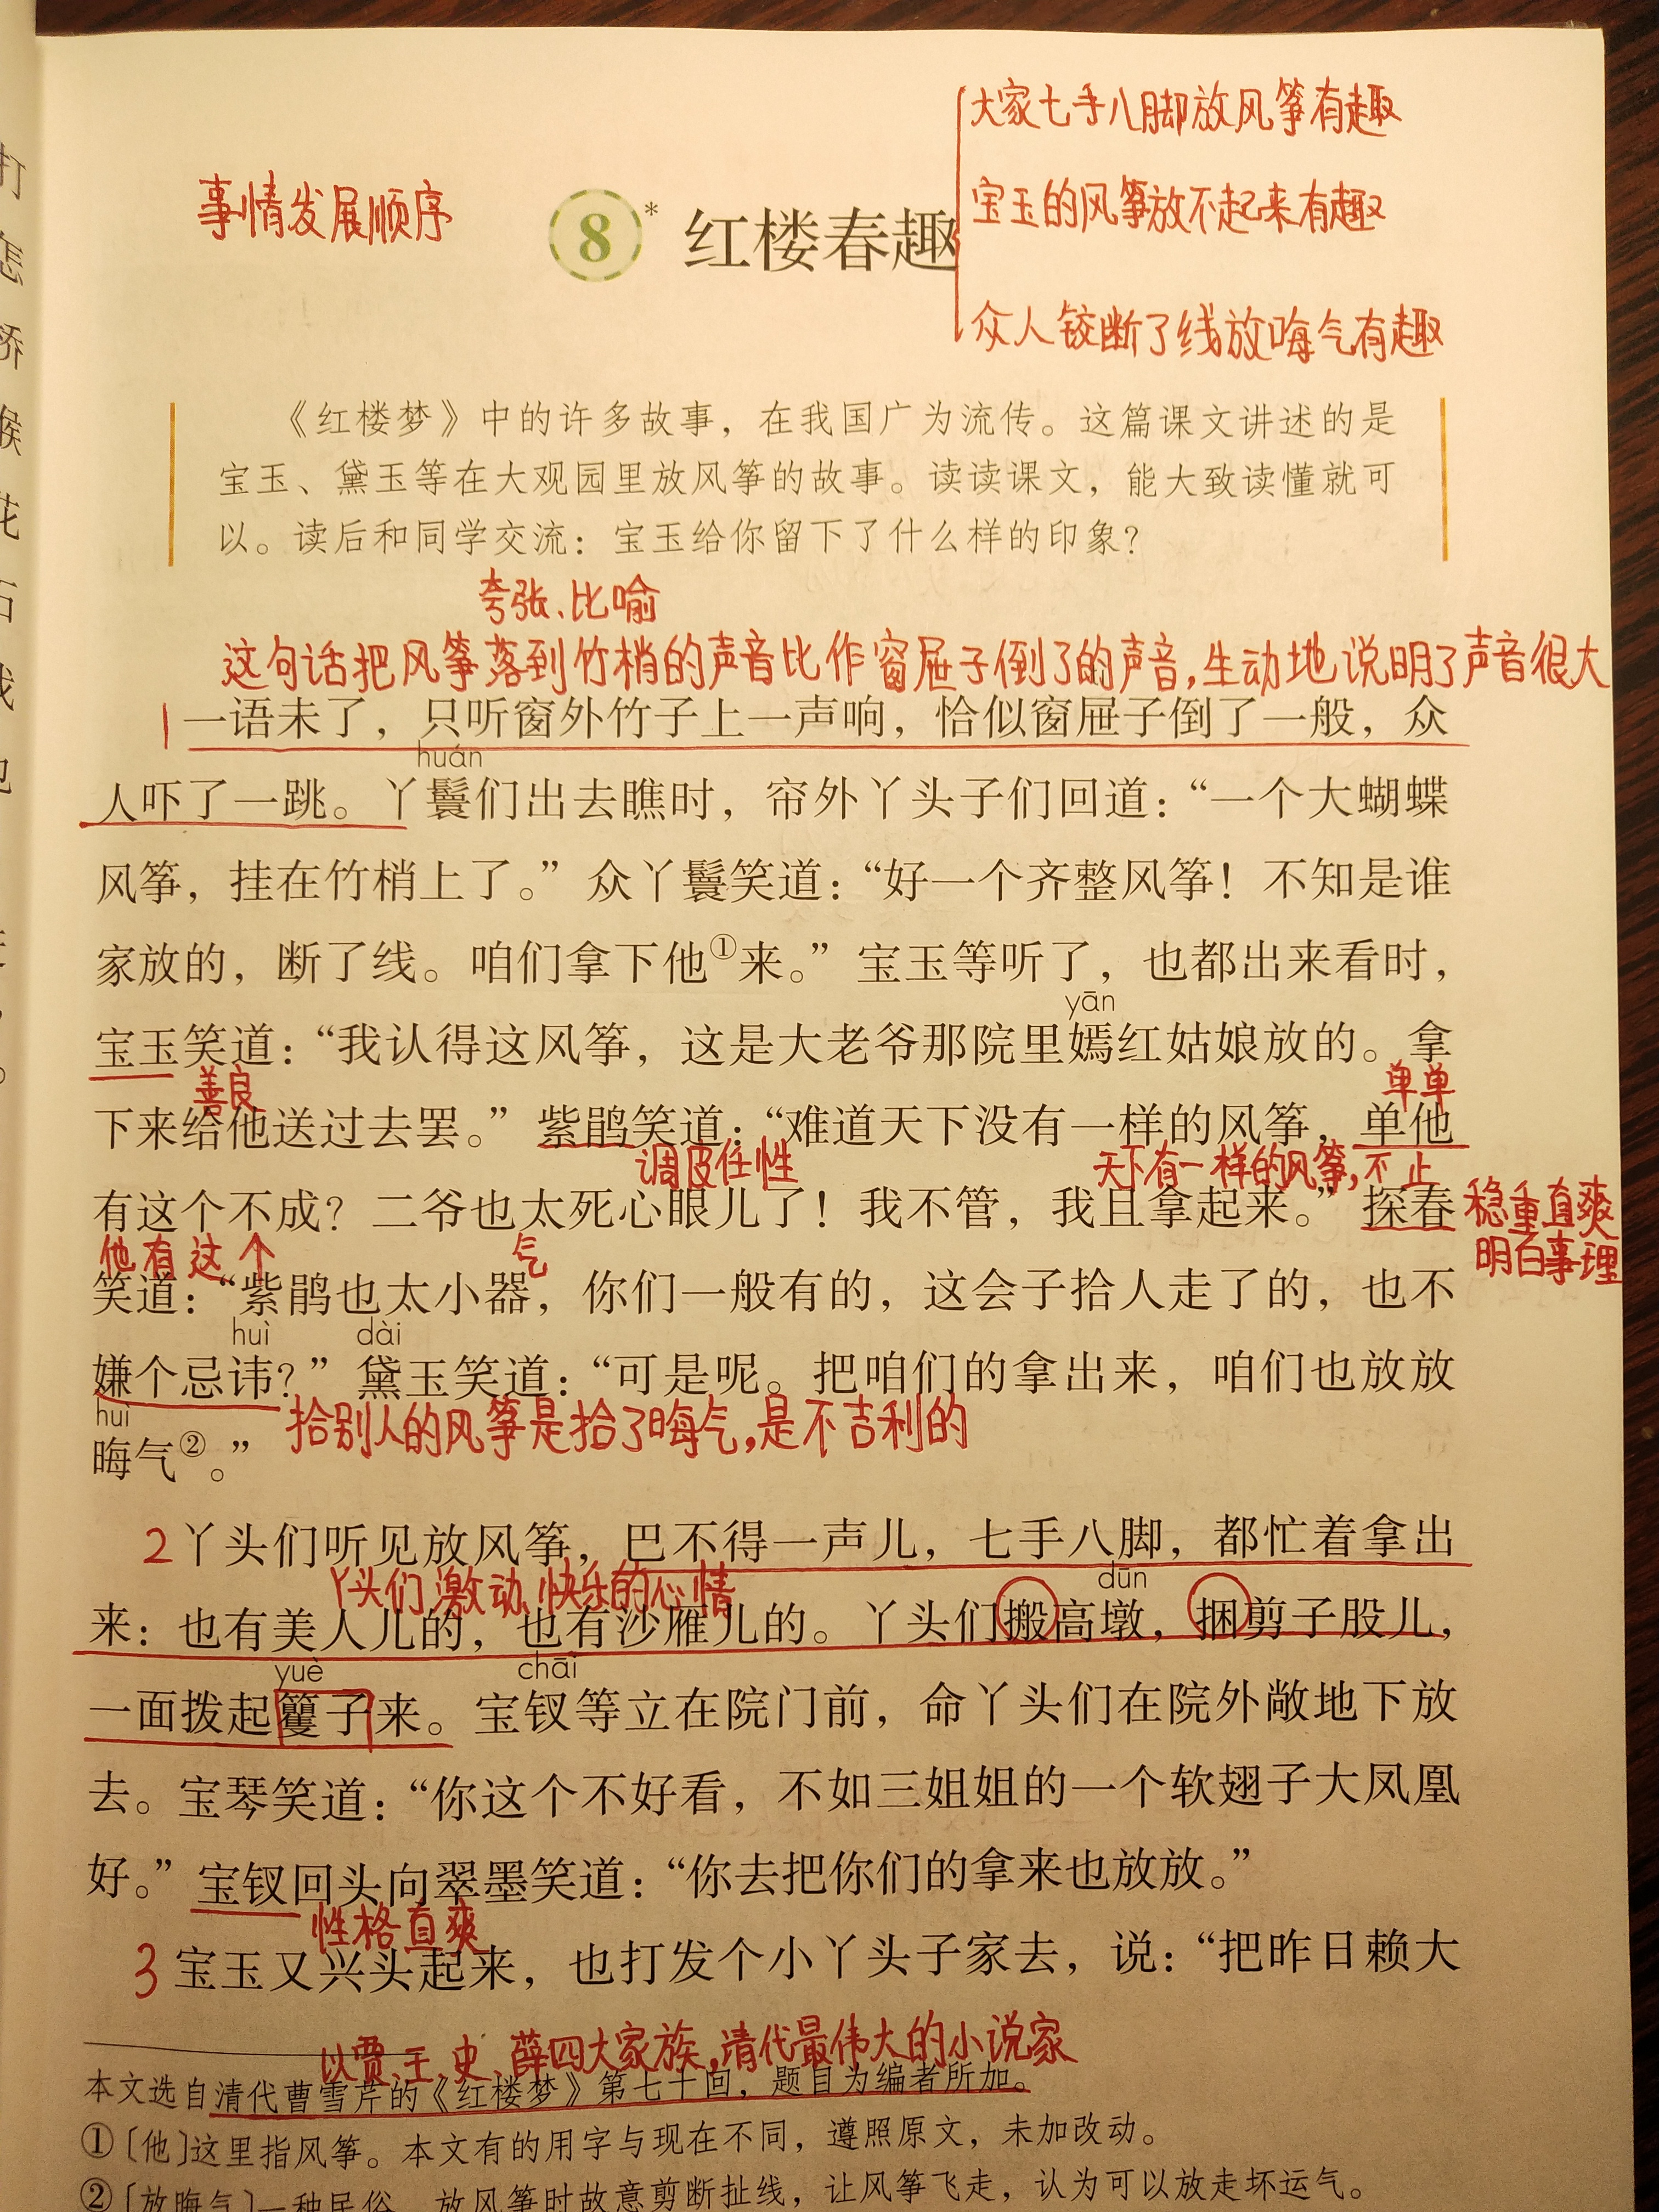 大家七手八脚放风筝有趣
事情发展顺序
宝玉的风筝放不起来有趣
8* 红楼春趣
众人铰断了线放晦气有趣
《红楼梦》中的许多故事，在我国广为流传。这篇课文讲述的是
宝玉、黛玉等在大观园里放风筝的故事。读读课文，能大致读懂就可
以。读后和同学交流：宝玉给你留下了什么样的印象？
夸张、比喻
这句话把风筝落到竹梢的声音比作窗屉子倒了的声音,生动地说明了声音很大
1 一语未了，只听窗外竹子上一声响，恰似窗屉子倒了一般，众
huán
人吓了一跳。丫鬟们出去瞧时，帘外丫头子们回道：“一个大蝴蝶
风筝，挂在竹梢上了。”众丫鬟笑道：“好一个齐整风筝！不知是谁
家放的，断了线。咱们拿下他①来。”宝玉等听了，也都出来看时，
yān
宝玉笑道：“我认得这风筝，这是大老爷那院里嫣红姑娘放的。拿
善良 单单
下来给他送过去罢。”紫鹃笑道：“难道天下没有一样的风筝，单他
调皮任性 天下有一样的风筝,不止
有这个不成？二爷也太死心眼儿了！我不管，我且拿起来。”探春 稳重直爽
他有这个 气 明白事理
笑道：“紫鹃也太小器，你们一般有的，这会子拾人走了的，也不
huì dài
嫌个忌讳？”黛玉笑道：“可是呢。把咱们的拿出来，咱们也放放
huì 拾别人的风筝是拾了晦气,是不吉利的
晦气②。”
2 丫头们听见放风筝，巴不得一声儿，七手八脚，都忙着拿出
丫头们激动、快乐的心情 dūn
来：也有美人儿的，也有沙雁儿的。丫头们搬高墩，捆剪子股儿，
yuè chāi
一面拨起籰子来。宝钗等立在院门前，命丫头们在院外敞地下放
去。宝琴笑道：“你这个不好看，不如三姐姐的一个软翅子大凤凰
好。”宝钗回头向翠墨笑道：“你去把你们的拿来也放放。”
性格直爽
3 宝玉又兴头起来，也打发个小丫头子家去，说：“把昨日赖大
以贾、王、史、薛四大家族,清代最伟大的小说家
本文选自清代曹雪芹的《红楼梦》第七十回，题目为编者所加。
①〔他〕这里指风筝。本文有的用字与现在不同，遵照原文，未加改动。
②〔放晦气〕一种民俗，放风筝时故意剪断扯线，让风筝飞走，认为可以放走坏运气。